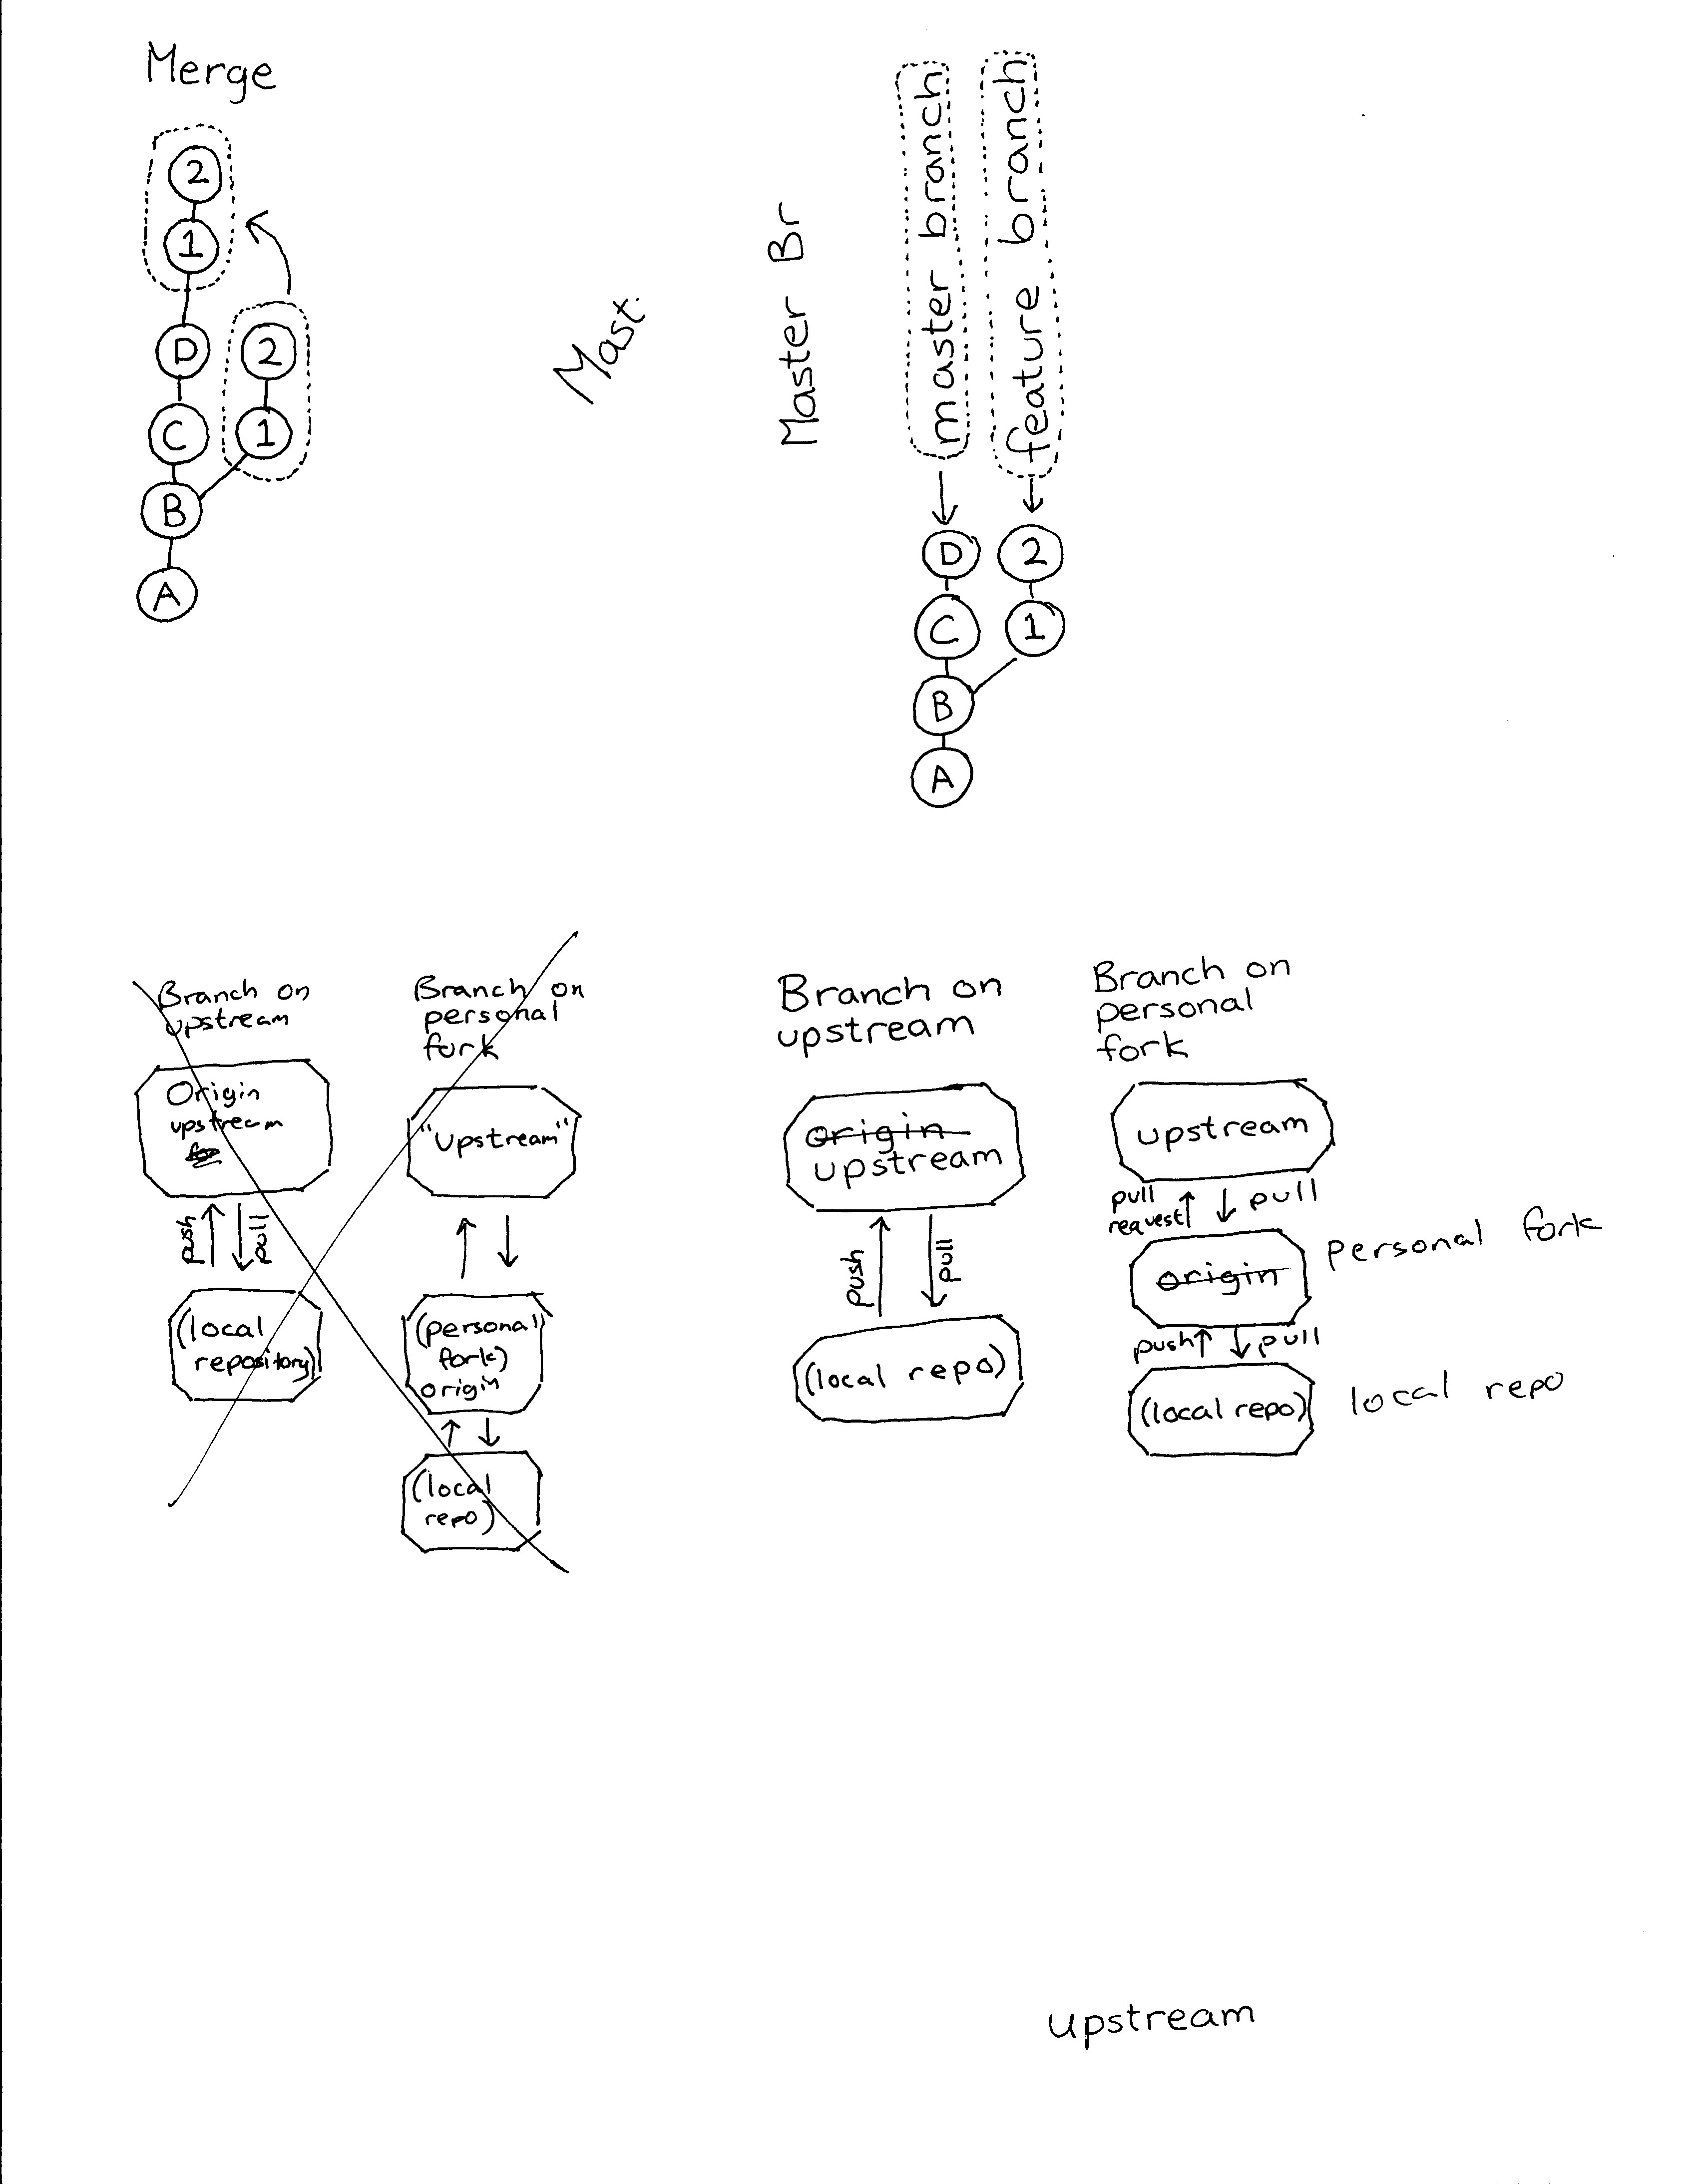 Merge
2
1
D
2
C
1
B
A
Mast
Master Br
master branch
feature branch
D
2
C
1
B
A
Branch on
upstream
Origin
upstream
push
pull
(local
repository)
Branch on
personal
fork
"upstream"
(personal
fork)
origin
(local
repo)
Branch on
upstream
origin
upstream
push
pull
(local repo)
Branch on
personal
fork
upstream
pull
request
pull
origin
personal fork
push
pull
(local repo)
local repo
upstream